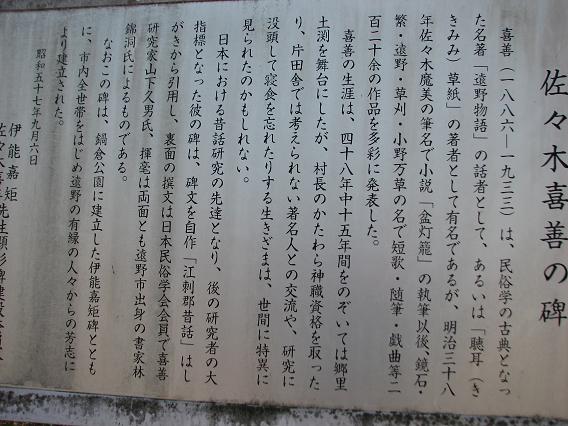 佐々木喜善の碑
喜善(一八八六―一九三三)は、民俗学の古典となっ
た名著「遠野物語」の話者として、あるいは「聴耳(き
きみみ)草紙」の著者として有名であるが、明治三十八
年佐々木魔美の筆名で小説「盆灯籠」の執筆以後、鏡石・
繁・遠野・草刈・小野万草の名で短歌・随筆・戯曲等二
百二十余の作品を多彩に発表した。
喜善の生涯は、四十八年中十五年間をのぞいては郷里
土渕を舞台にしたが、村長のかたわら神職資格を取った
り、片田舎では考えられない著名人との交流や、研究に
没頭して寝食を忘れたりする生きざまは、世間に特異に
見られたのかもしれない。
日本における昔話研究の先達となり、後の研究者の大
指標となった彼の碑は、碑文を自作「江刺郡昔話」はし
がきから引用し、裏面の撰文は日本民俗学会会員で喜善
研究家山下久男氏、揮毫は両面とも遠野市出身の書家林
錦洞氏によるものである。
なおこの碑は、鍋倉公園に建立した伊能嘉矩碑ととも
に、市内全世帯をはじめ遠野の有縁の人々からの芳志に
より建立された。
昭和五十七年九月六日
伊能嘉矩
佐々木喜善先生顕彰碑建設委員会